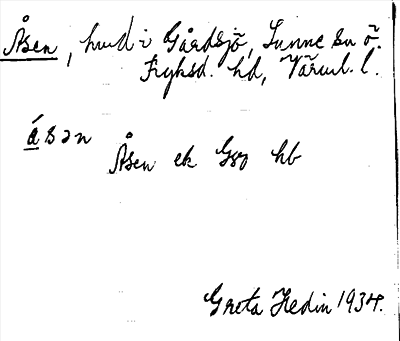 Åsen, hmd i Gårdsjö, Sunne sn ö.
Fryksd. hd, Värml. l.
åsən
Åsen ek Gsg hb
Greta Hedin 1934.